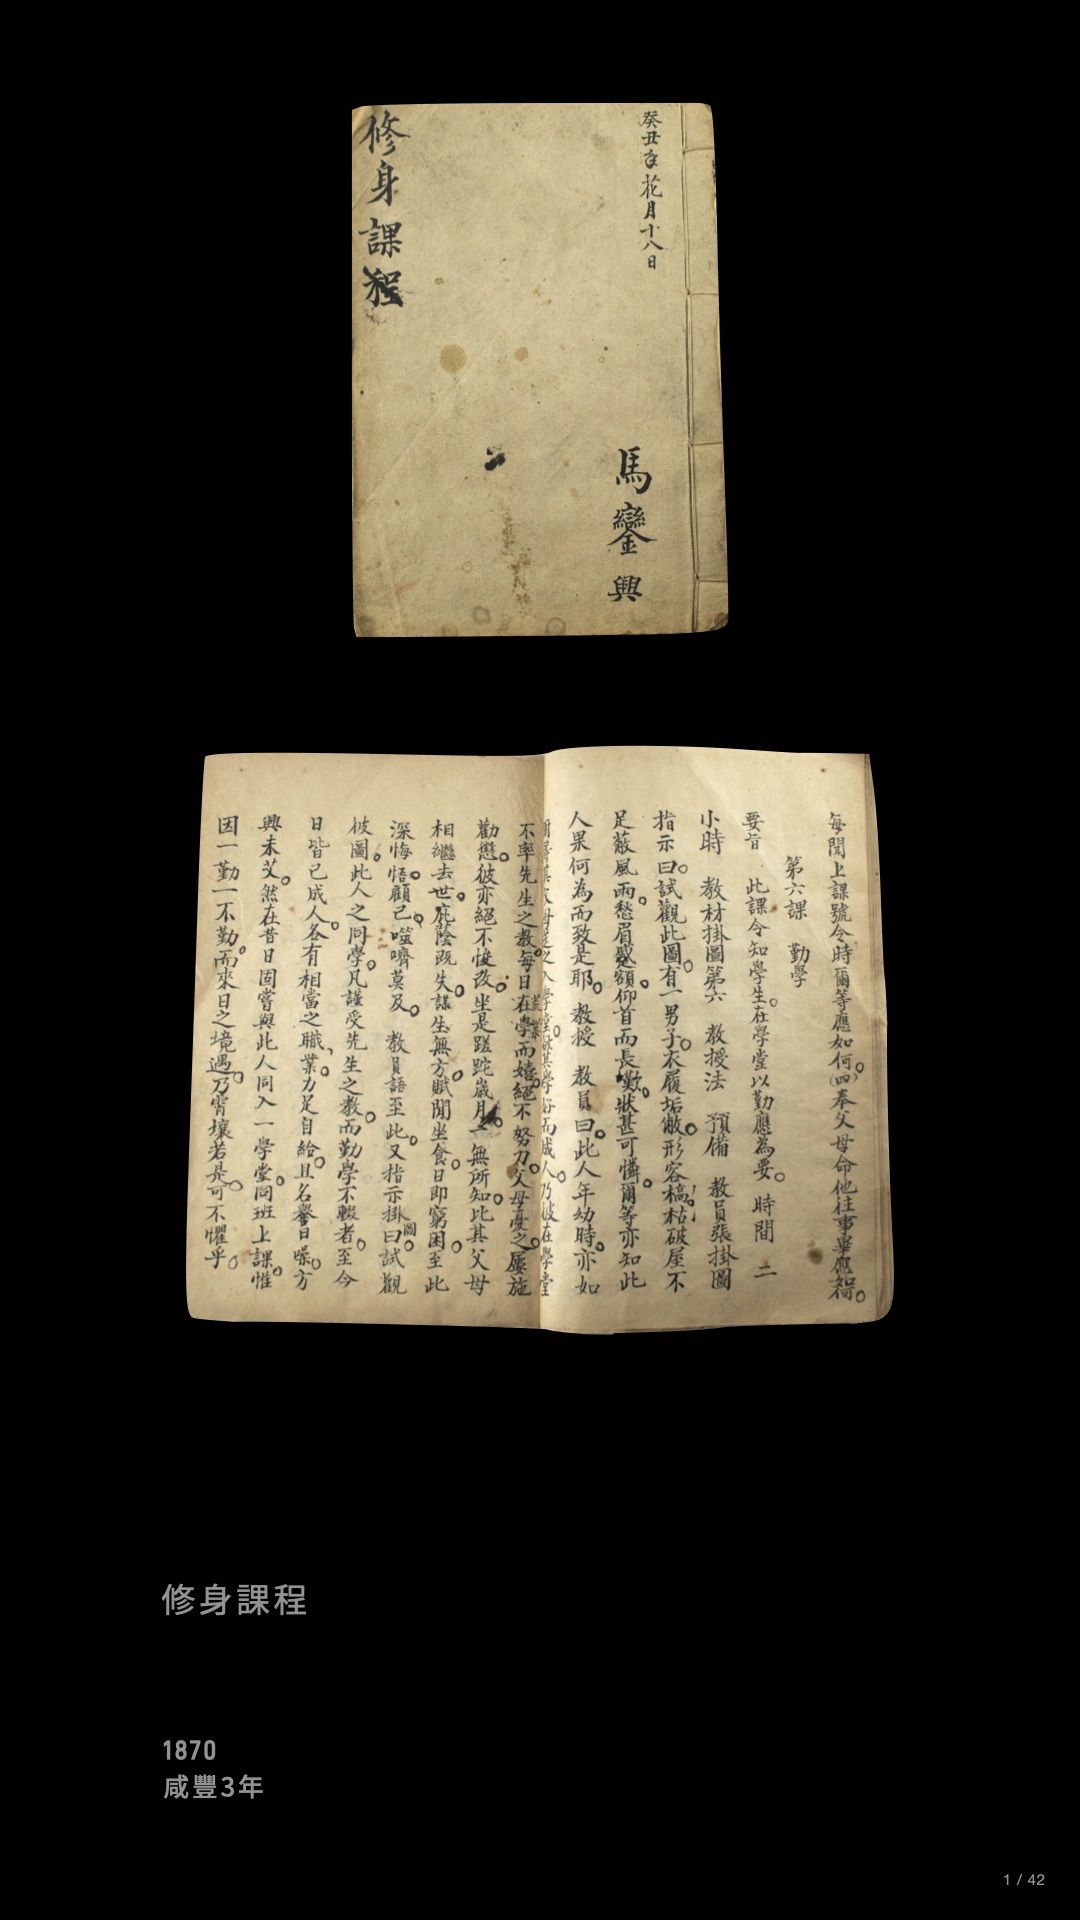 修身課程
癸丑年花月十八日
馬鑾興
每聞上課號令時爾等應如何(四)奉父母命他往事畢應如何
第六課 勤學
要旨 此課令知學生在學堂以勤應為要 時間 二
小時 教材掛圖第六 教授法 預備 教員張掛圖
指示曰試觀此圖有一男子衣履垢敝形容槁枯破屋不
足蔽風雨愁眉蹙額仰首而長嘆狀甚可憐爾等亦知此
人果何為而致是耶 教授 教員曰此人年幼時亦如
學堂 其學好而成人乃彼在學堂
不率先生之教每日在學而嬉絕不努力父母憂之屢施
荒業
勸懲彼亦絕不悛改坐是蹉跎歲月一無所知比其父母
相繼去世庇蔭既失謀生無方賦閒坐食日即窮困至此
深悔悟顧已噬嚌莫及 教員語至此又指示掛圖曰試觀
彼圖此人之同學凡謹受先生之教而勤學不輟者至今
日皆已成人各有相當之職業力足自給且名譽日噪方
興未艾然在昔日固嘗與此人同入一學堂同班上課惟
因一勤一不勤而來日之境遇乃霄壤若是可不懼乎
修身課程
1870
咸豐3年
1 / 42